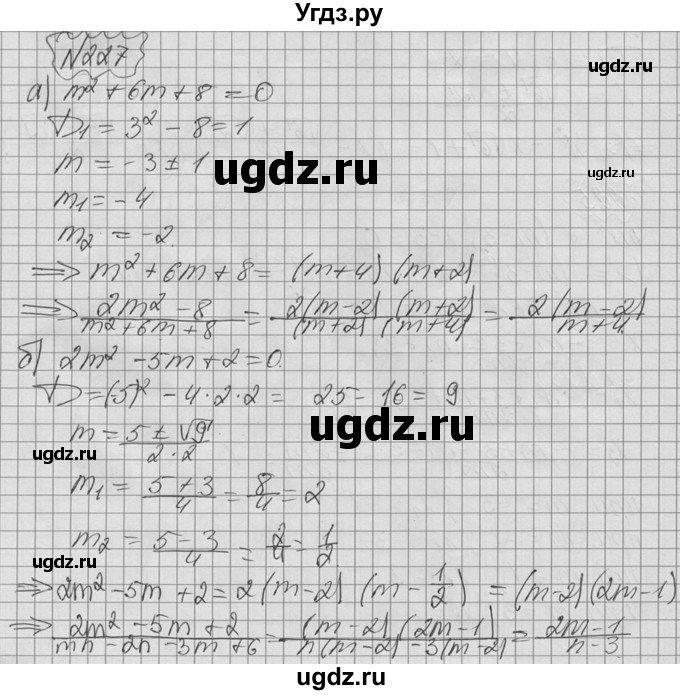 Угдз.ру
N227
ugdz.ru
а) m² + 6m + 8 = 0
D₁ = 3² - 8 = 1
ugdz.ru
m = -3 ± 1
ugdz.ru
m₁ = -4
m₂ = -2
⇒ m² + 6m + 8 = (m+4)(m+2)
⇒ (2m² - 8)/(m² + 6m + 8) = (2(m-2)(m+2))/((m+2)(m+4)) = (2(m-2))/(m+4)
б) 2m² - 5m + 2 = 0
D = (5)² - 4·2·2 = 25 - 16 = 9
ugdz.ru
m = (5 ± √9)/(2·2)
ugdz.ru
ugdz.ru
m₁ = (5+3)/4 = 8/4 = 2
m₂ = (5-3)/4 = 2/4 = 1/2
ugdz.ru
ugdz.ru
⇒ 2m² - 5m + 2 = 2(m-2)(m - 1/2) = (m-2)(2m-1)
⇒ (2m² - 5m + 2)/(mn - 2n - 3m + 6) = ((m-2)(2m-1))/(n(m-2) - 3(m-2)) = (2m-1)/(n-3)
ugdz.ru